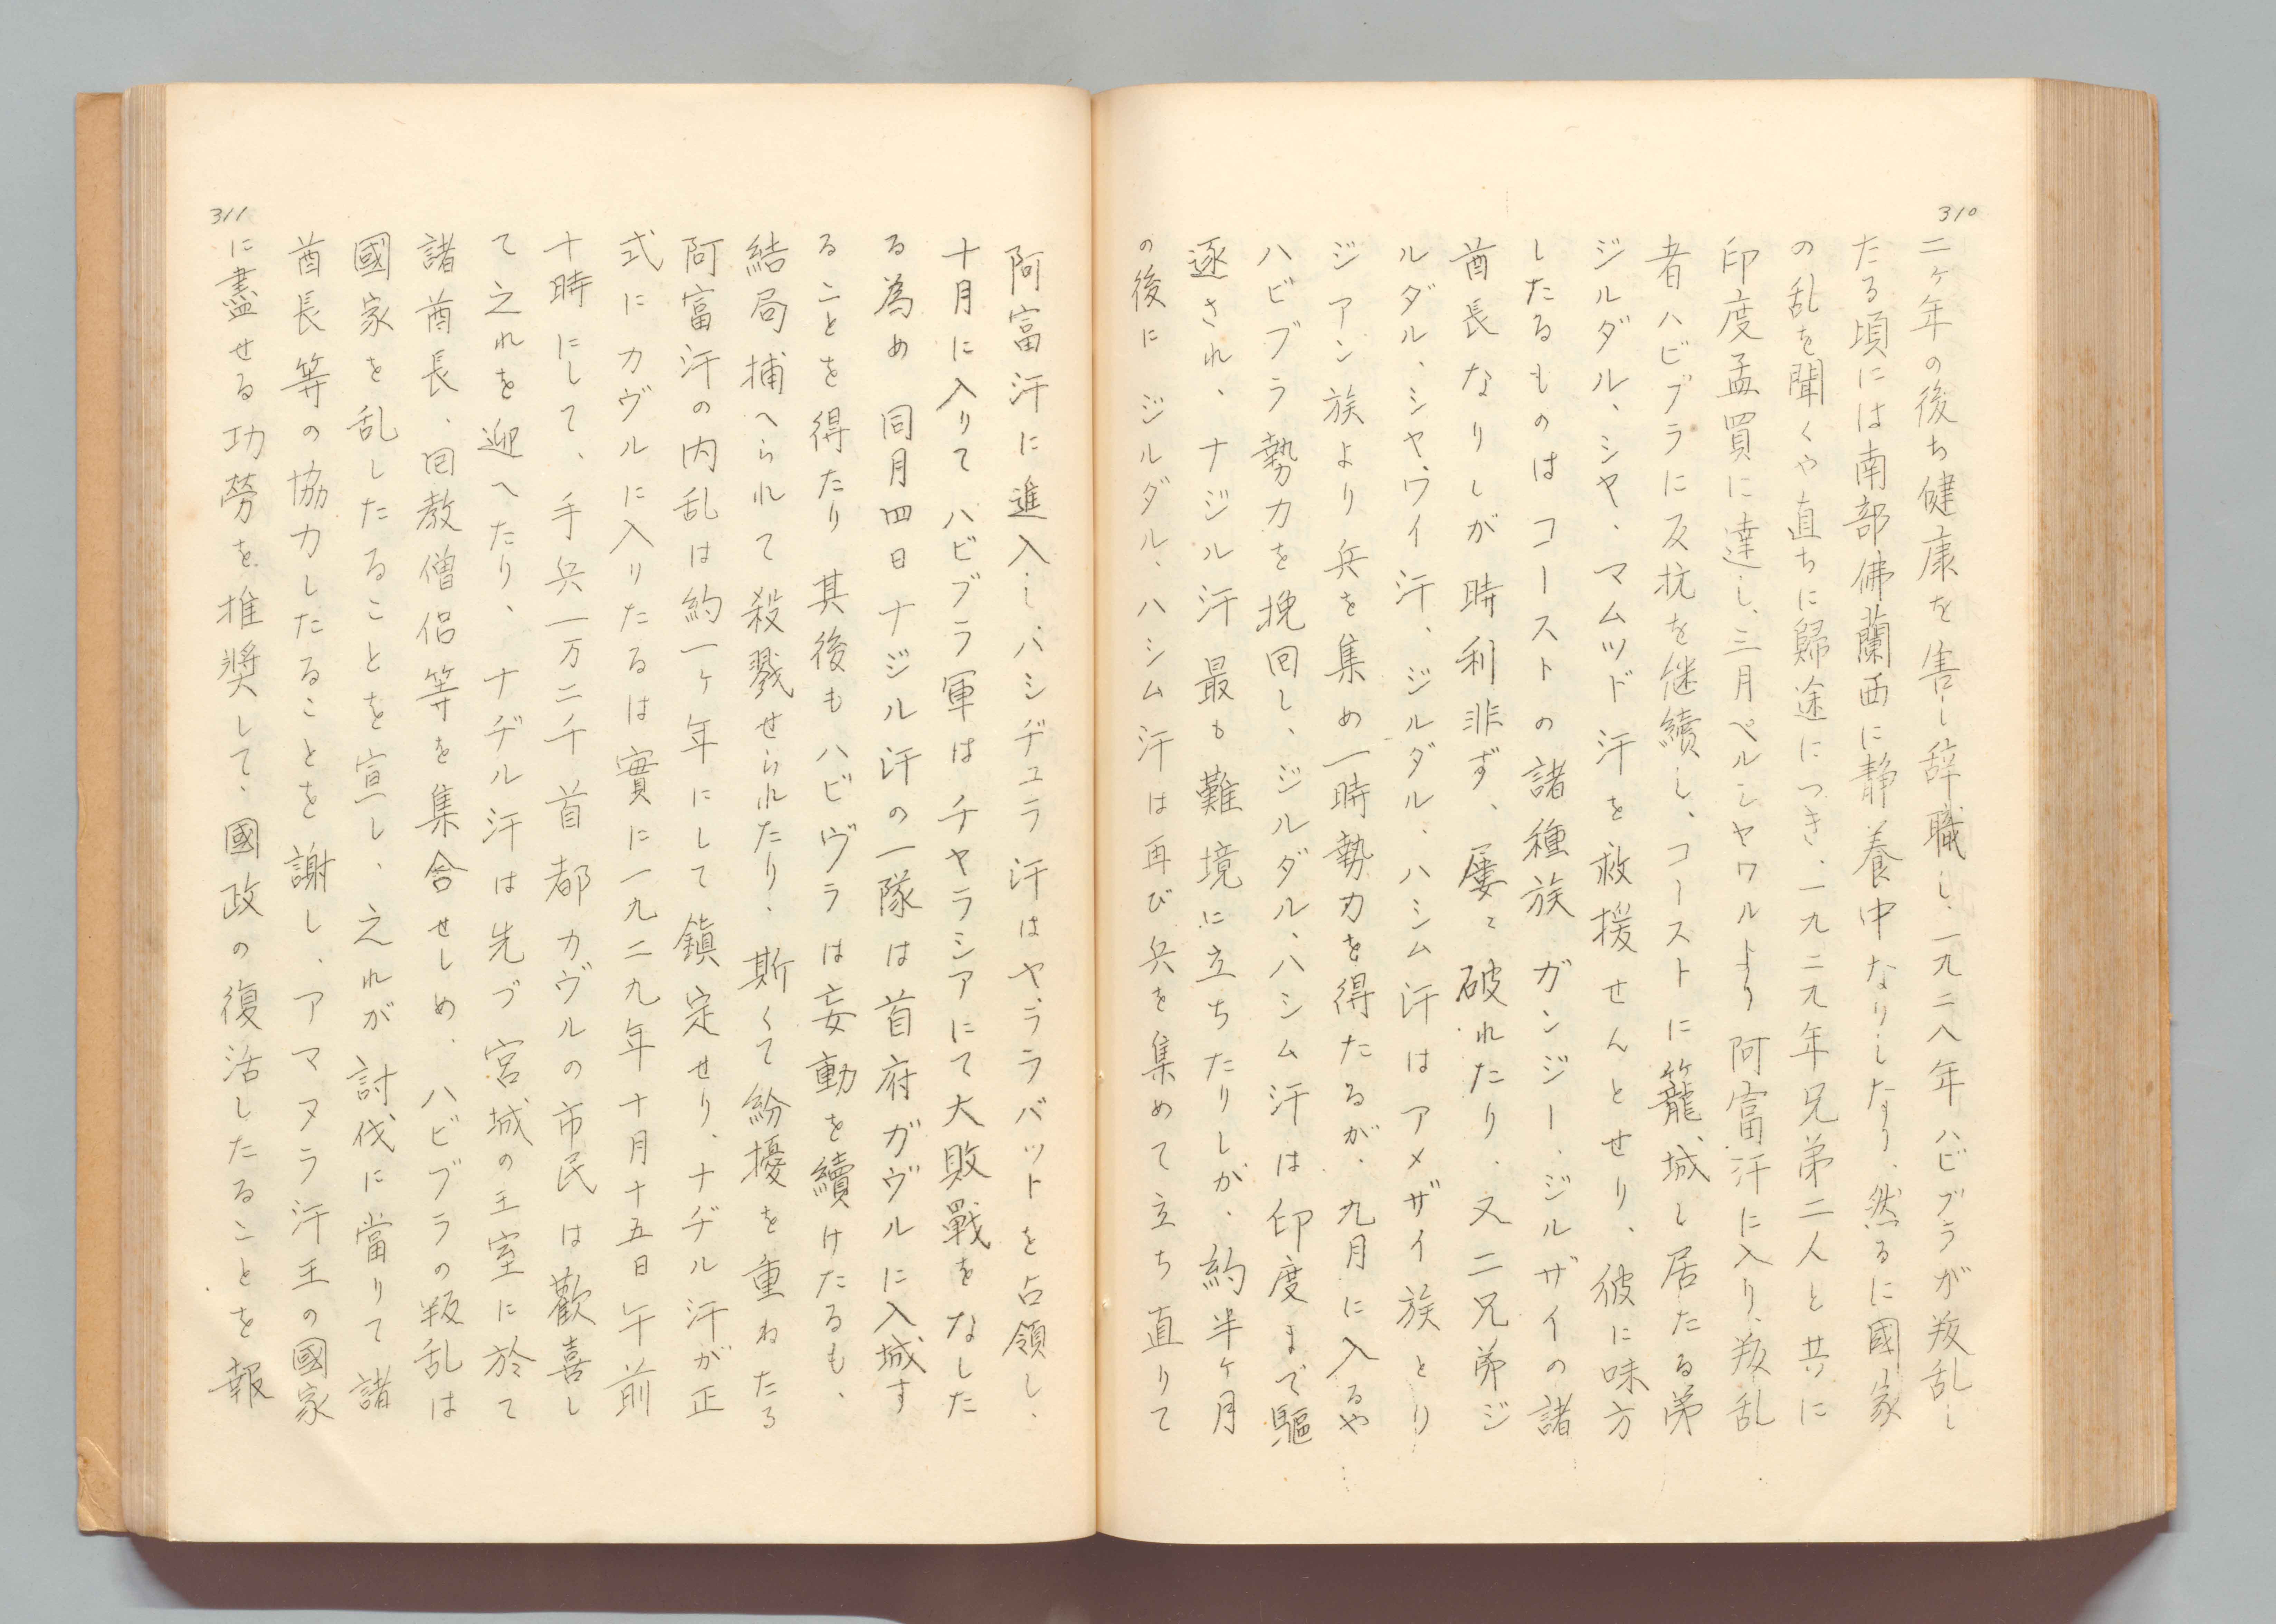 310
二ヶ年の後ち健康を害し辞職し、一九二八年ハビブラが叛乱し
たる頃には南部佛蘭西に静養中なりしなり、然るに國家
の乱を聞くや直ちに歸途につき、一九二九年兄弟二人と共に
印度孟買に達し、三月ペルシヤワルより阿富汗に入り、叛乱
者ハビブラに反抗を継續し、コーストに籠城し居たる弟
ジルダル、シヤ、マムツド汗を救援せんとせり、彼に味方
したるものはコーストの諸種族ガンジー、ジルザイの諸
酋長なりしが時利非ず、屢〻破れたり、又二兄弟ジ
ルダル、シヤ、ワイ汗、ジルダル、ハシム汗はアメザイ族とり
ジアン族より兵を集め一時勢力を得たるが、九月に入るや
ハビブラ勢力を挽回し、ジルダル、ハシム汗は印度まで驅
逐され、ナジル汗最も難境に立ちたりしが、約半ヶ月
の後にジルダル、ハシム汗は再び兵を集めて立ち直りて
阿富汗に進入し、ハシヂユラ汗はヤララバットを占領し、
十月に入りてハビブラ軍はチヤラシアにて大敗戰をなした
る為め同月四日ナジル汗の一隊は首府ガヴルに入城す
ることを得たり其後もハビヴラは妄動を續けたるも、
結局捕へられて殺戮せられたり、斯くて紛擾を重ねたる
阿富汗の内乱は約一ヶ年にして鎭定せり、ナヂル汗が正
式にカヴルに入りたるは實に一九二九年十月十五日午前
十時にして、手兵一万二千首都カヴルの市民は歡喜し
て之れを迎へたり、ナヂル汗は先づ宮城の王室に於て
諸酋長、回教僧侶等を集合せしめ、ハビブラの叛乱は
國家を乱したることを宣し、之れが討伐に當りて諸
酋長等の協力したることを謝し、アマヌラ汗王の國家
に盡せる功勞を推奨して、國政の復活したることを報
311